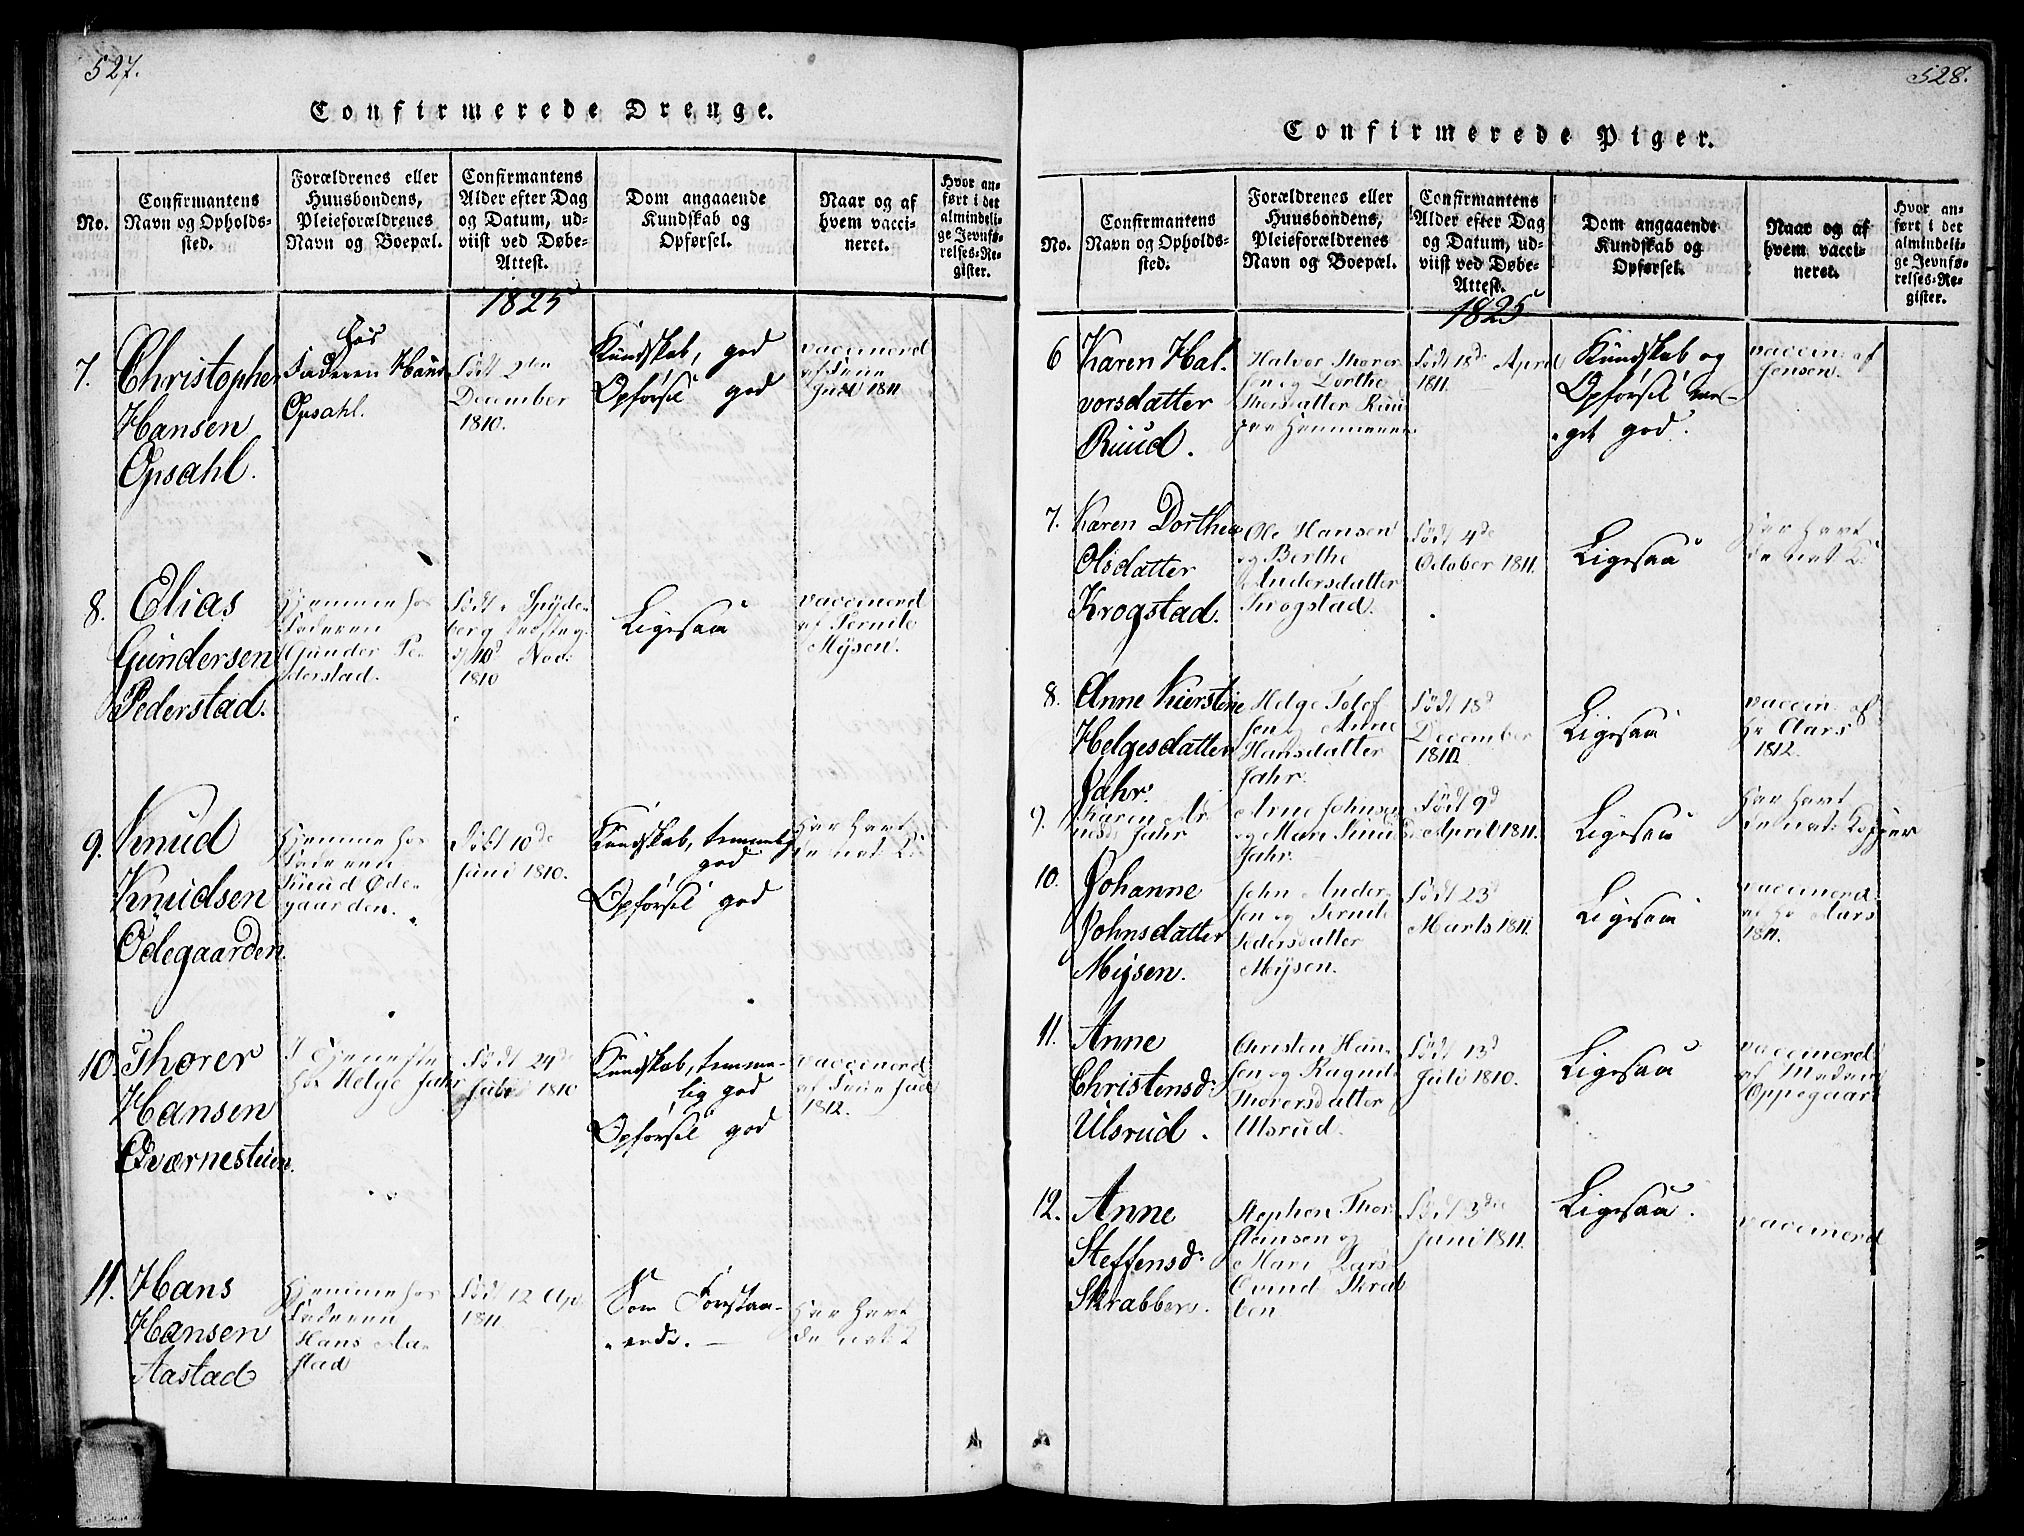 527.
Confirmerede Drenge.
No.
Confirmantens
Navn og Opholds-
sted.
Forældrenes eller
Huusbondens,
Pleieforældrenes
Navn og Boepæl.
Confirmantens
Alder efter Dag
og Datum, ud-
viist ved Døbe-
Attest.
Dom angaaende
Kundskab og
Opførsel.
Naar og af
hvem vacci-
neret.
Hvor an-
ført i det
almindeli-
ge Jevnfø-
relses-Re-
gister.
1825
7.
Christopher
Hansen
Opsahl.
hos
Faderen Hans
Opsahl.
Født 2den
December
1810.
Kundskab, god
Opførsel god
vaccinered
1811
8.
Elias
Gundersen
Pederstad.
Hjemme hos
Faderen
Gunder Pe-
derstad.
Født i Spyde-
berg
10d Nov:
1810
Ligesaa
vaccinered
af Pernile
Mysen.
9.
Knud
Knudsen
Ödegaarden.
Hjemme hos
Faderen
Knud Öde-
gaarden.
Født 10de
Juni 1810.
Kundskab, temmelig
god
Opførsel god
Har havt
de nat. K.
10.
Thorer
Hansen
Qværnesteien.
I Tjeneste
hos Helge Jahr
Født 24de
1810
Kundskab, temme-
lig god
Opførsel god
vaccinered
af
1812.
11.
Hans
Hansen
Aastad
Hjemme hos
Faderen
Hans Aa-
stad
Født 12 Apr
1811.
Som Forstaa-
ende.
Har havt
de nat K
528.
Confirmerede Piger.
No.
Confirmantens
Navn og Opholds-
sted.
Forældrenes eller
Huusbondens,
Pleieforældrenes
Navn og Boepæl.
Confirmantens
Alder efter Dag
og Datum, ud-
viist ved Døbe-
Attest.
Dom angaaende
Kundskab og
Opførsel.
Naar og af
hvem vacci-
neret.
Hvor an-
ført i det
almindeli-
ge Jevnfø-
relses-Re-
gister.
1825
6
Karen Hal-
vorsdatter
Ruud.
Halvor Thorer-
sen og Dorthe
Thorsdatter Ruu
Født 18de April
1811.
Kundskab og
Opførsel me-
get god.
vaccin. af
Jensen.
7.
Karen Dorthea
Olsdatter
Krogstad.
Ole Hansen
og Berthe
Andersdatter
Krogstad.
Født 4de
October 1811.
Ligesaa
Har havt
de nat K
8.
Anne Kierstine
Helgesdatter
Jahr.
Helge Tolof-
sen og Anne
Hansdatter
Jahr.
Født 18d
December
1810
Ligesaa
vaccin. af
Hr Aars
1812.
9.
Karen Ar-
nesd: Jahr
Arne Johnsen
og Mari Knuds
Jahr.
Født 9d
April 1811.
Ligesaa
Har havt
de nat: Kopper
10.
Johanne
Johnsdatter
Mysen.
John Ander-
sen og Pernile
Pedersdatter
Mysen.
Født 23d
Marts 1811.
Ligesaa
vaccinered
af Hr Aars
1811.
11.
Anne
Christensd:
Ulsrud.
Christen Han-
sen og Ragnild
Thorersdatter
Ulsrud.
Født 13d
Juli 1810.
Ligesaa
vaccinered
af Madam
Oppegaard
12.
Anne
Steffensd:
Skrabben.
Stephen Thor-
steinsen og
Mari Lars-
Eviud Skrab-
ben
Født 3die
Juni 1811.
Ligesaa.
vaccinered